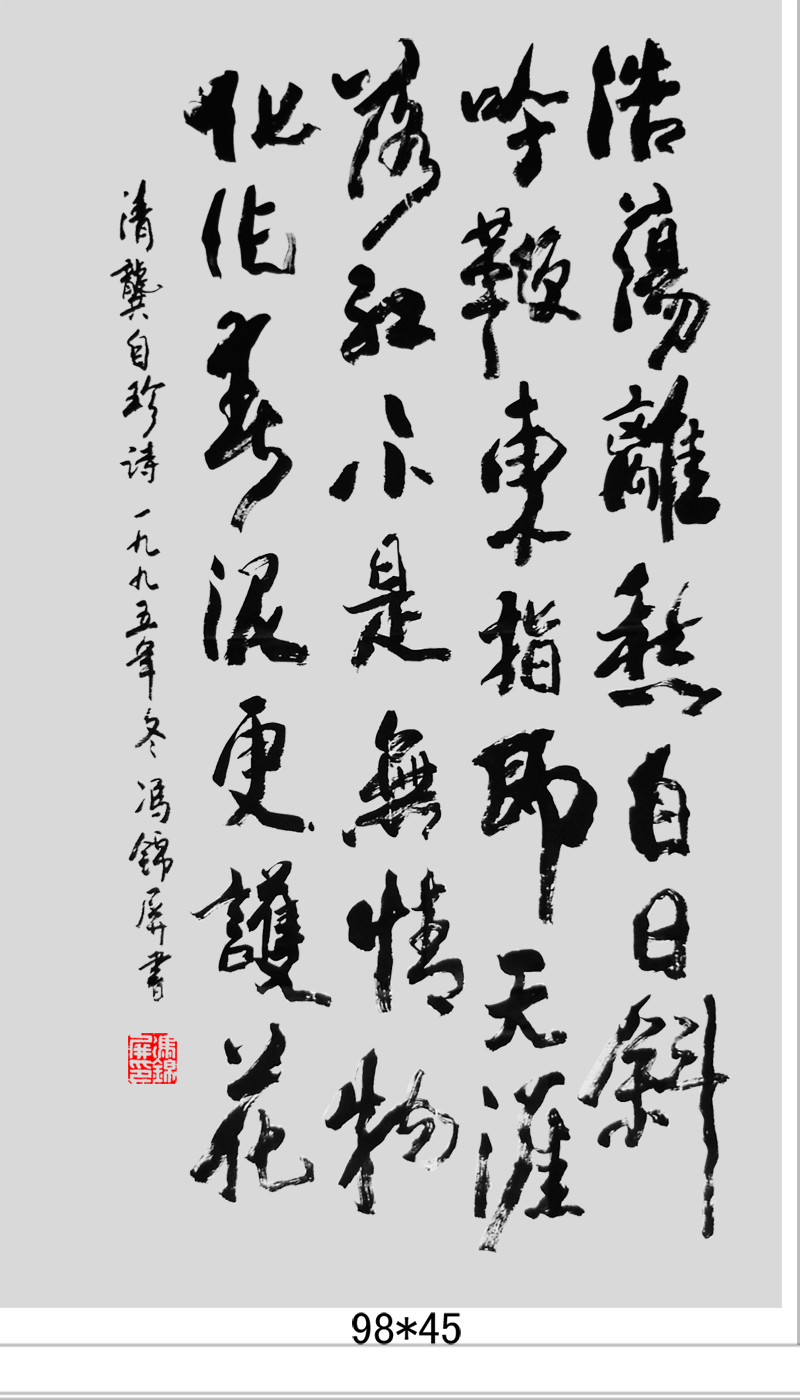 浩蕩離愁白日斜
吟鞭東指即天涯
落红不是無情物
化作春泥更護花
清龔自珍诗 一九九五年冬 冯锦屏書
馮錦屏印
98*45